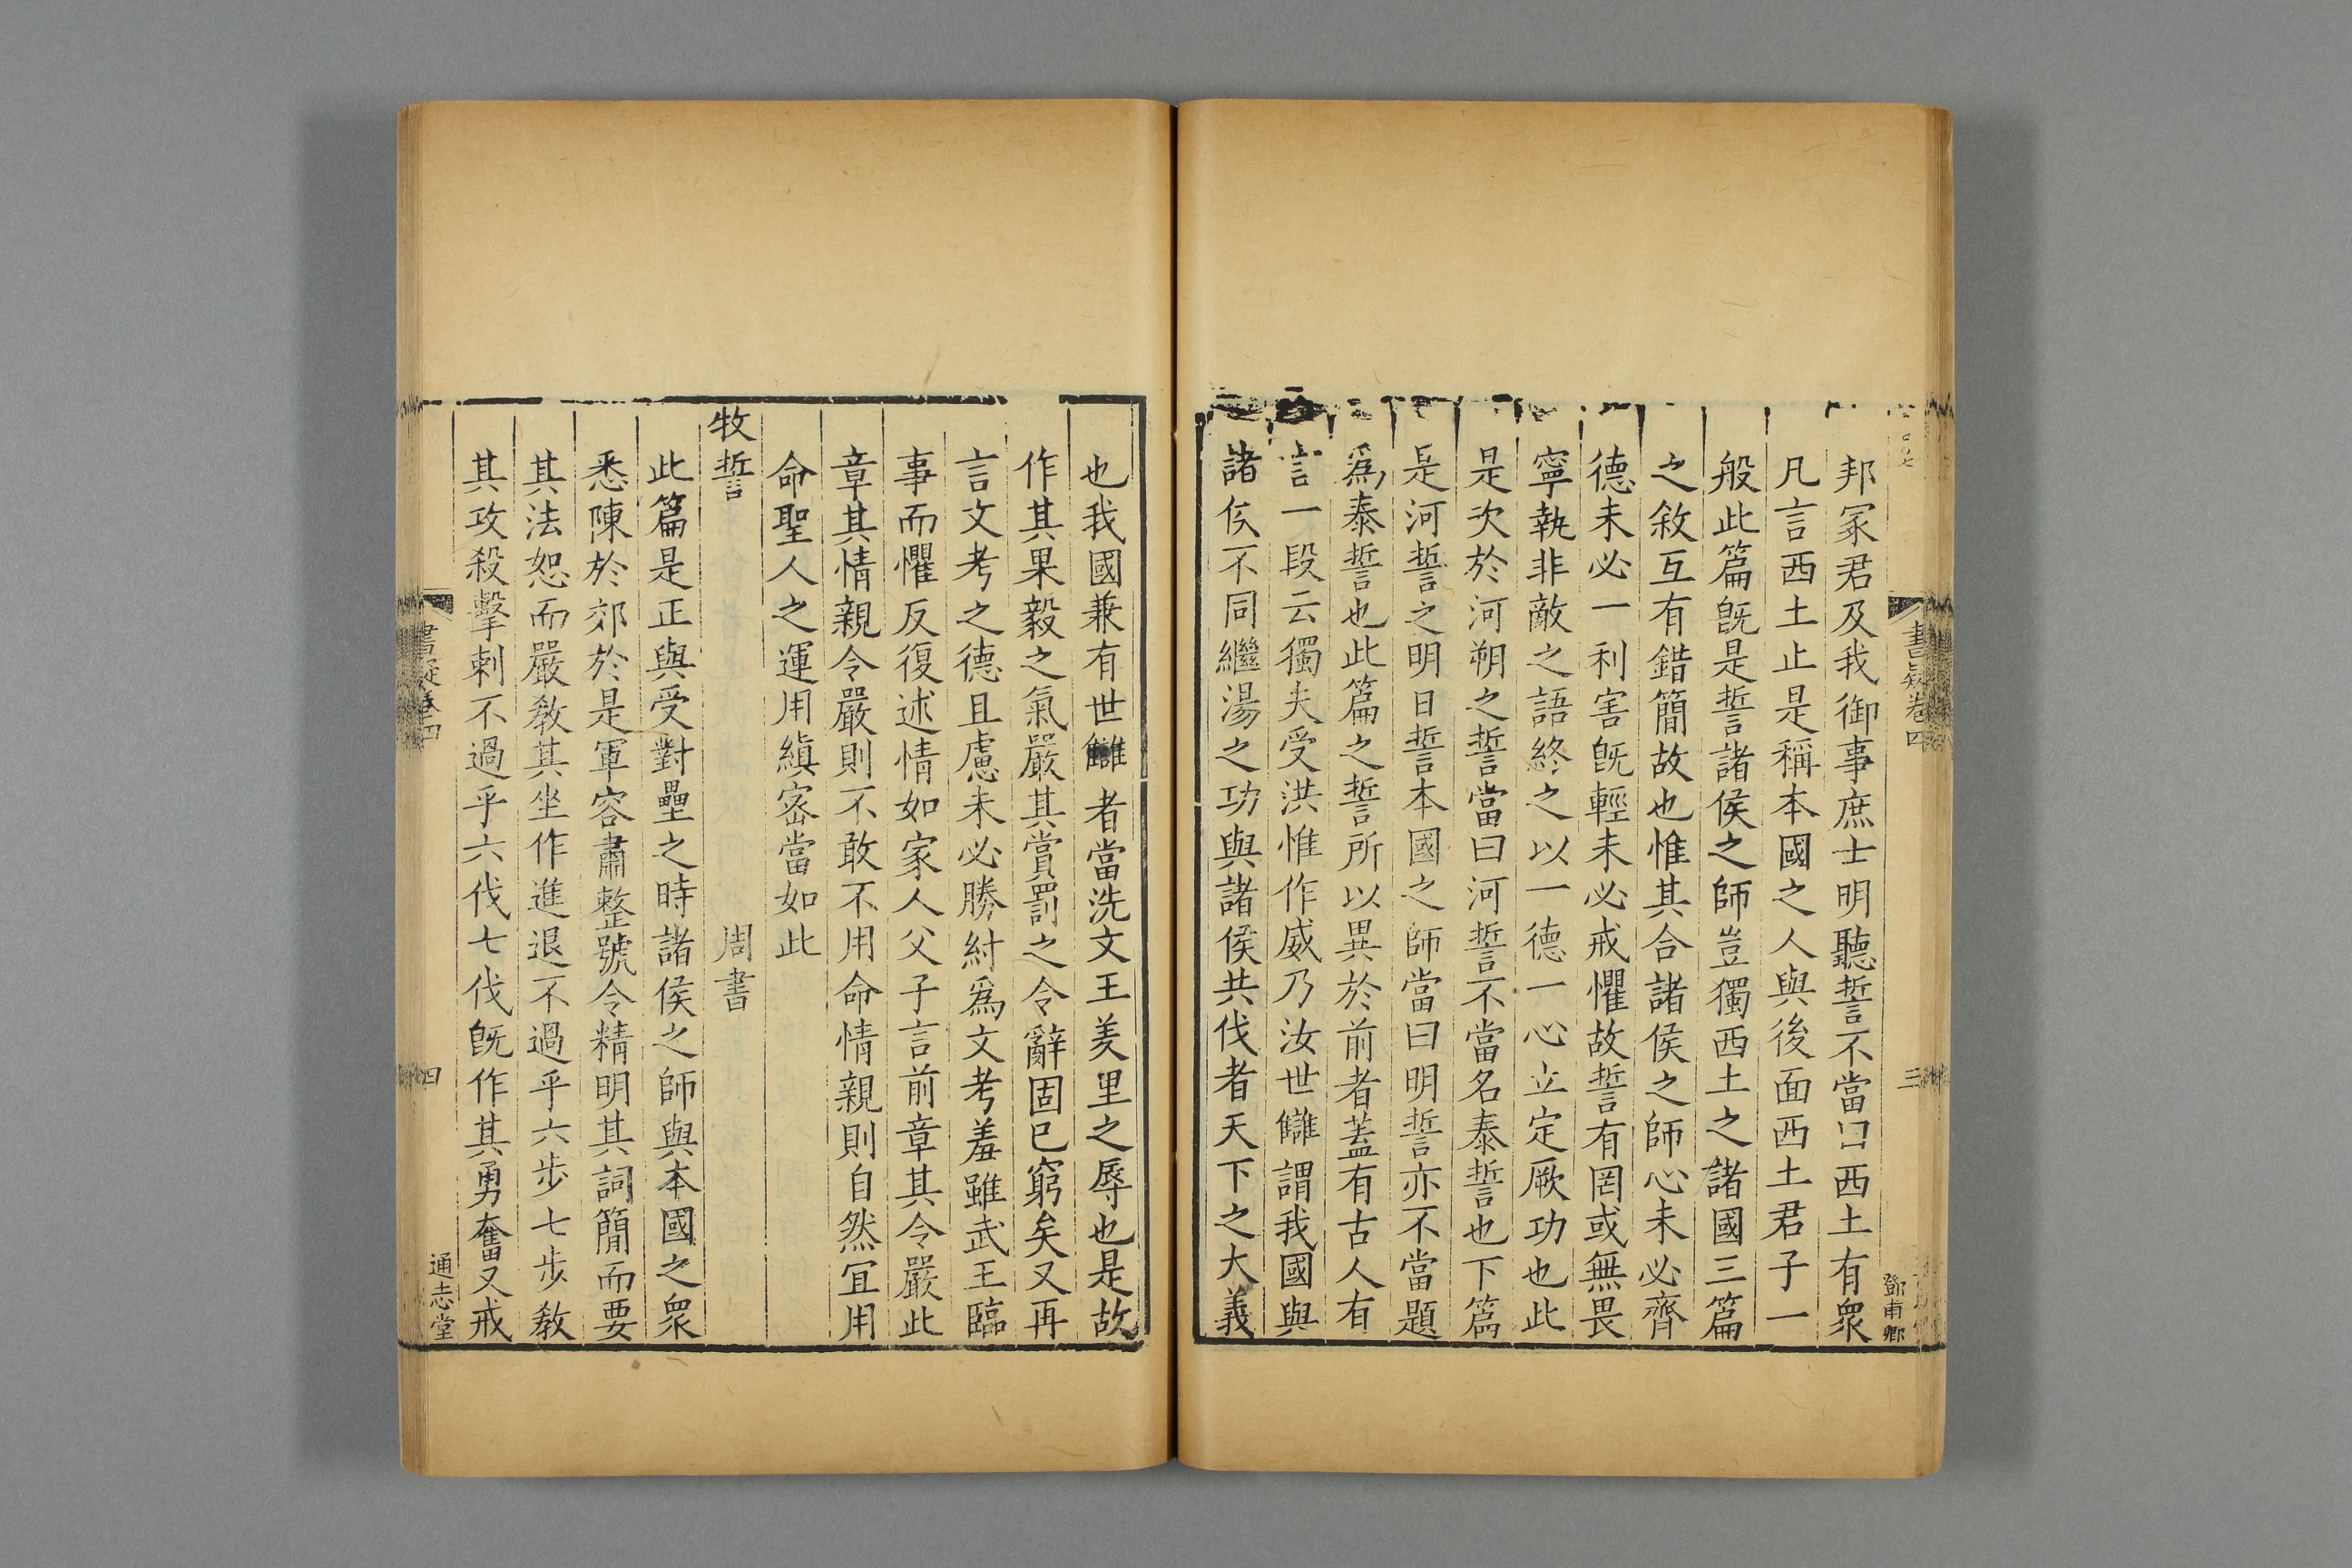 書疑卷四
三
鄧甫卿
邦冢君及我御事庶士明聽誓不當曰西土有衆
凡言西土止是稱本國之人與後面西土君子一
般此篇旣是誓諸侯之師豈獨西土之諸國三篇
之敘互有錯簡故也惟其合諸侯之師心未必齊
德未必一利害旣輕未必戒懼故誓有罔或無畏
寧執非敵之語終之以一德一心立定厥功也此
是次於河朔之誓當曰河誓不當名泰誓也下篇
是河誓之明日誓本國之師當曰明誓亦不當題
爲泰誓也此篇之誓所以異於前者蓋有古人有
言一段云獨夫受洪惟作威乃汝世讎謂我國與
諸侯不同繼湯之功與諸侯共伐者天下之大義
也我國兼有世讎者當洗文王羑里之辱也是故
作其果毅之氣嚴其賞罰之令辭固已窮矣又再
言文考之德且慮未必勝紂爲文考羞雖武王臨
事而懼反復述情如家人父子言前章其令嚴此
章其情親令嚴則不敢不用命情親則自然冝用
命聖人之運用縝密當如此
牧誓
周書
此篇是正與受對壘之時諸侯之師與本國之衆
悉陳於郊於是軍容肅整號令精明其詞簡而要
其法恕而嚴敎其坐作進退不過乎六步七步敎
其攻殺擊刺不過乎六伐七伐旣作其勇奮又戒
書疑卷四
四
通志堂